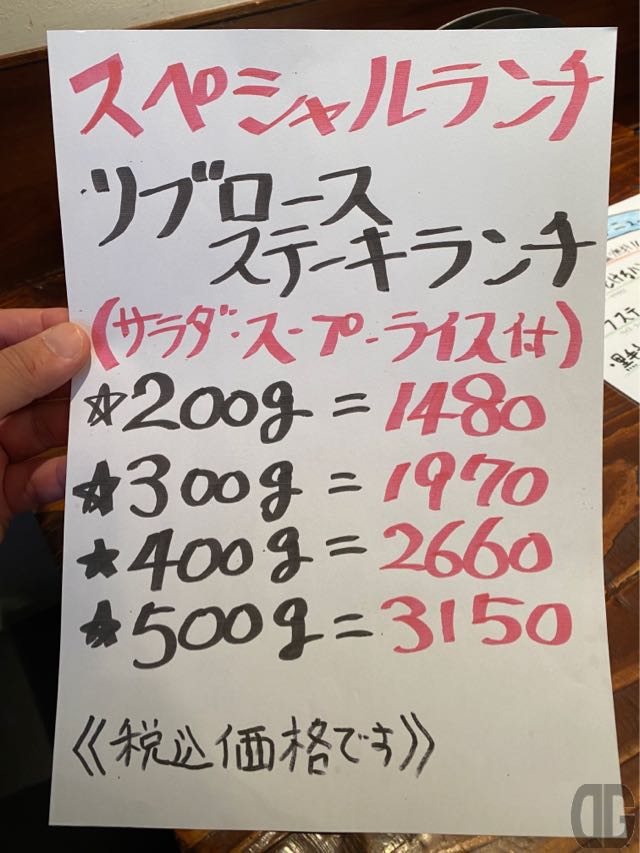 スペシャルランチ
リブロース
ステーキランチ
(サラダ・スープ・ライス付)
☆200g=1480
★300g=1970
★400g=2660
★500g=3150
《税込価格です》
DG